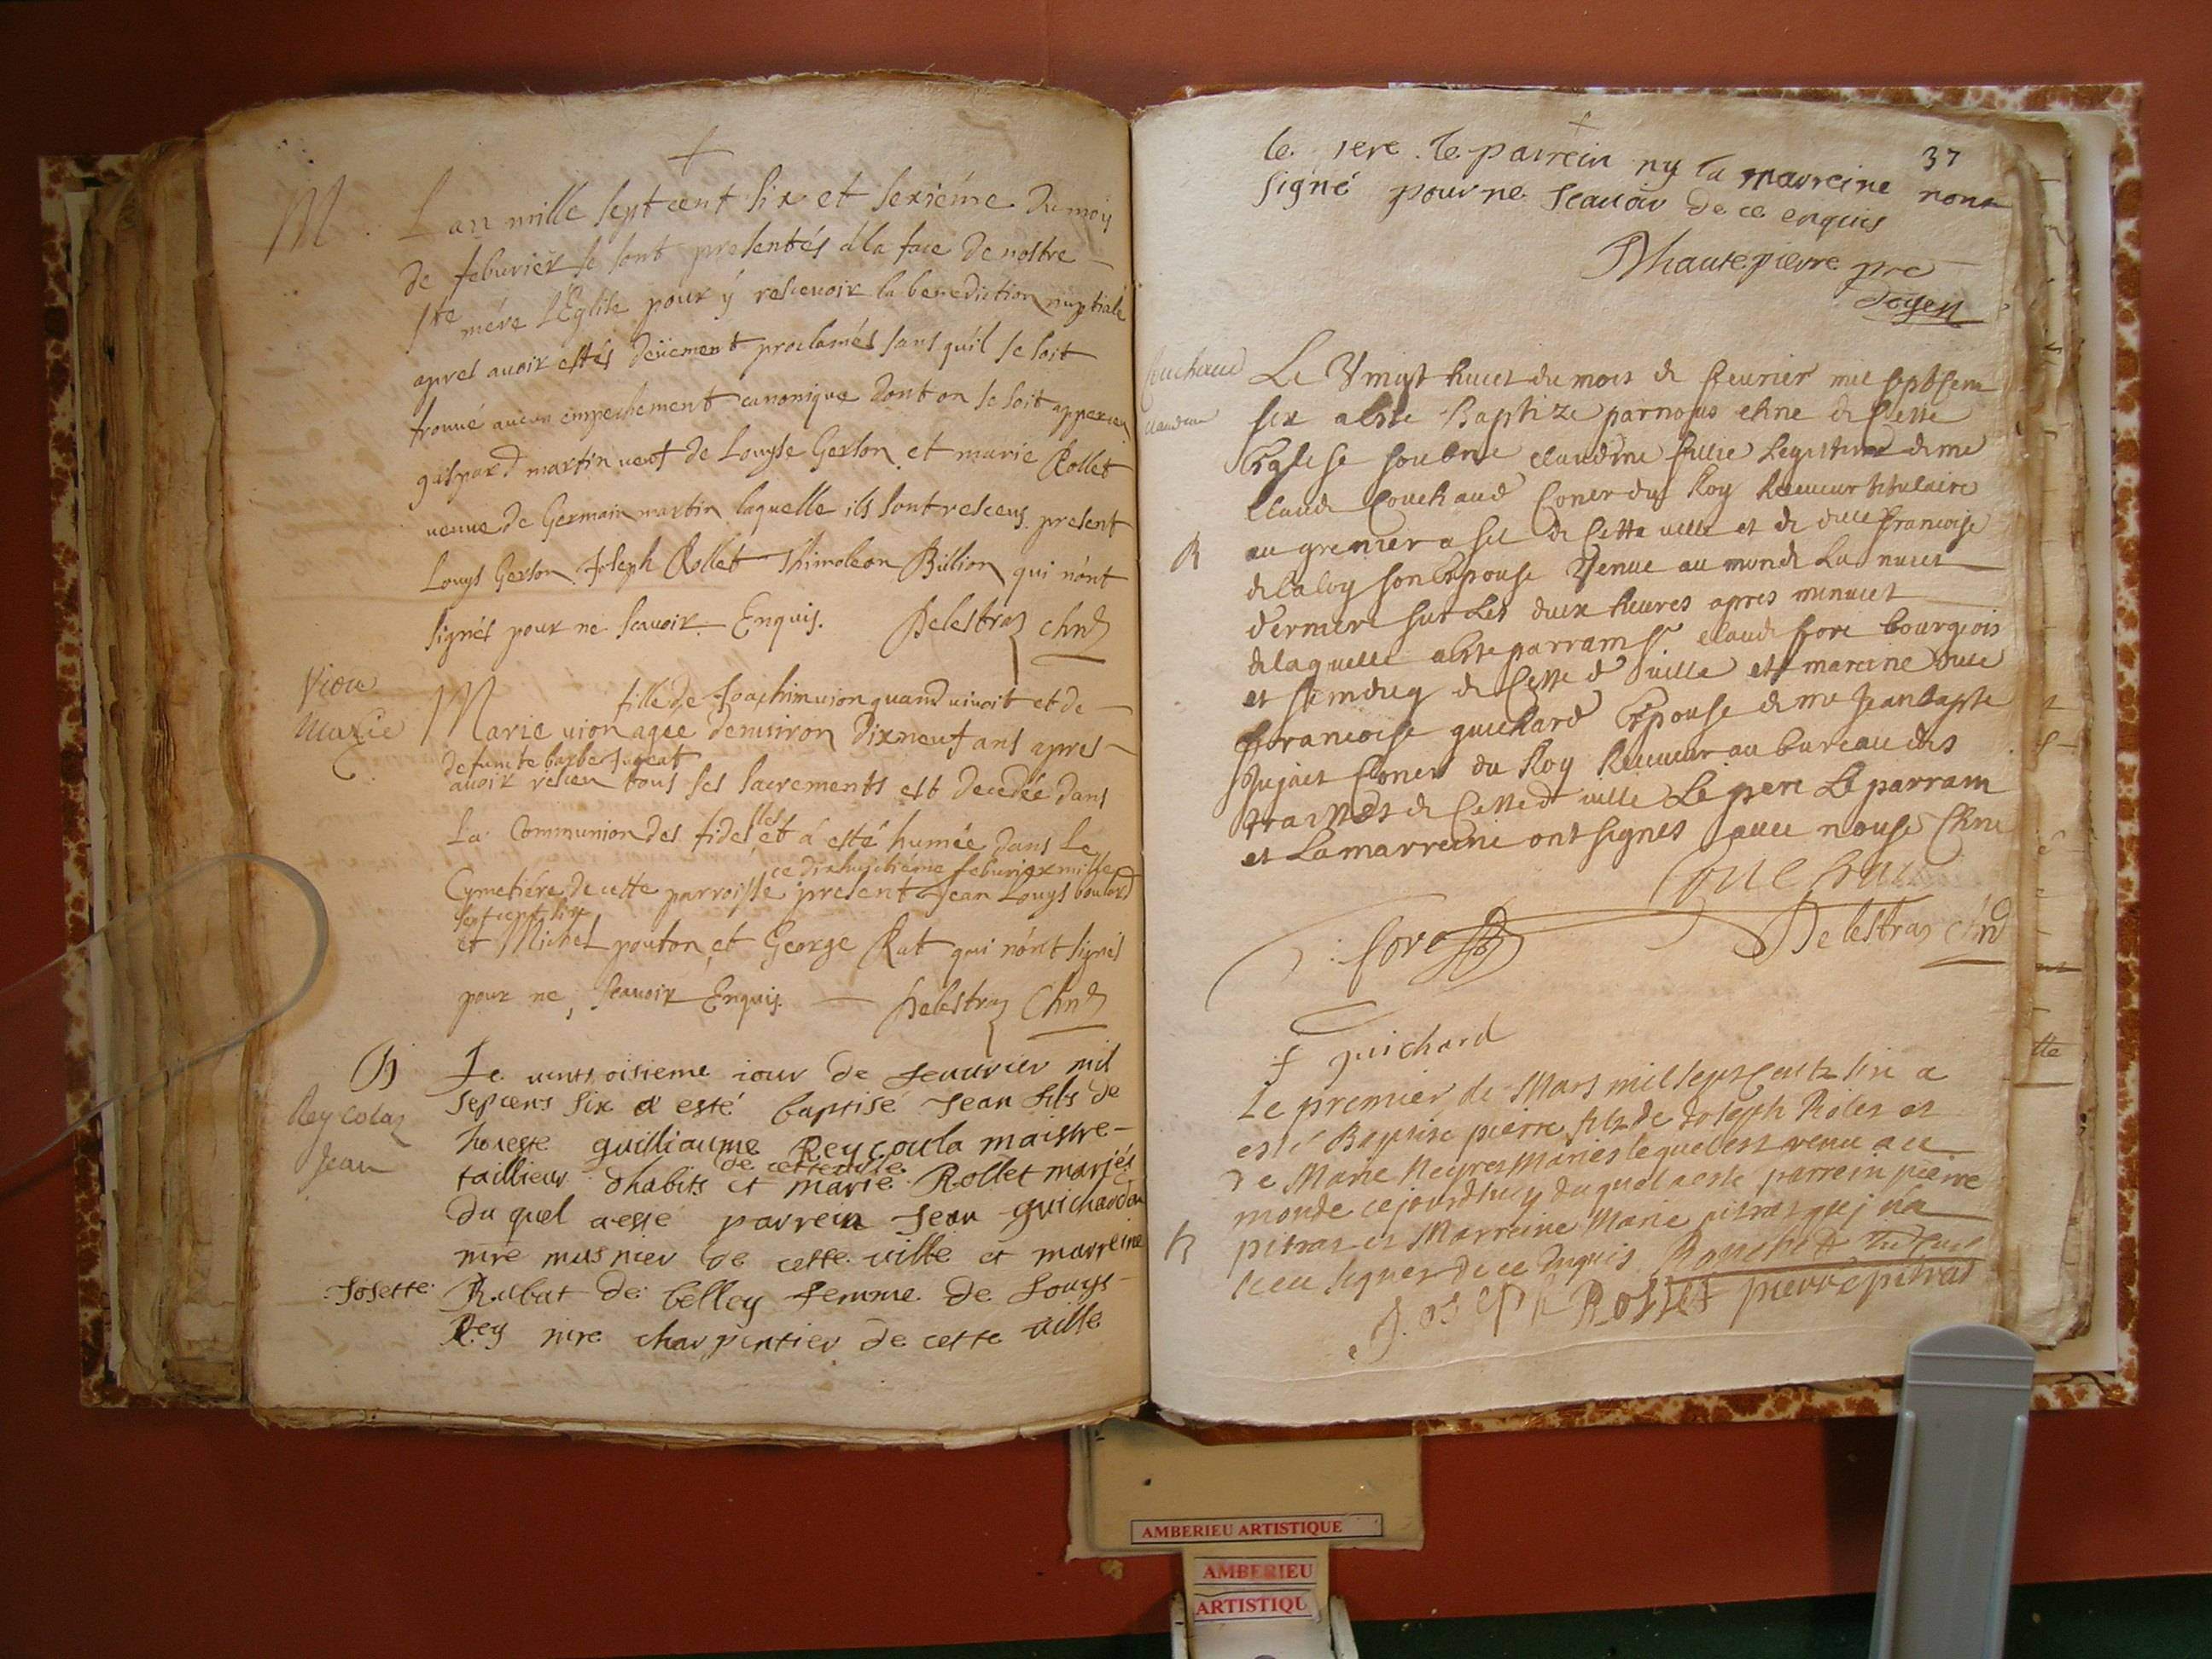 M
L an mille sept cent six et sexiéme du mois
de feburier se sont presentés á la face de nostre
ste mére L'Eglise pour ÿ rescevoir la benediction nuptiale
apres auoir estés deüement proclamés sans quíl se soit
trouué aucun empechement canonique dont on se soit apperceu
gaspard martin veuf de Louyse Gerson et marie Rollet
veuve de Germain martin laquelle ils sont resceus present
Louys Gerson Joseph Rollet Thimoleon Bülion qui nónt
signés pour ne scauoir Enquis. Delestraz chne
Vion
Marie
fille de Joachim vion quand vivoit et de
Marie vion agée denuiron dixneuf ans apres
defunte barbe
auoir resceu tous ses sacrements est decedée dans
La Communion des fidelles et á esté humée dans Le
ce dixhuictiéme feburier mille
Cymetiére de cette parroisse present Jean Louys boulard
sept cent six
et Michel pouton et George Rat qui nónt signés
pour ne scauoir Enquis. Delestraz Chne
B
Reycolaz
Jean
Le vintroisieme iour de feuurier mil
sepcens six a esté baptisé Jean fils de
honeste guilliaume Reycoula maistre
de cette ville
taillieur dhabits et marie Rollet mariés
du quel a esté parrein Jean guichardon
mre musnier de cette ville et marreine
Josette Rubat de belley femme de Louys
Rey mre charpentier de cette ville
37
le pere le parrein ny la marreine nont
signé pour ne scauoir de ce enquis
Dhautepierre pre
Doyen
Couchaud
claudine
Le Vingt huict du mois de feurier mil sept cent
six a esté Baptizé par nous chne de cette
Eglise soubne claudine fillie Legitime de me
Claude Couchaud Coner du Roy Receueur titulaire
B
au grenier a sel de cette ville et de dlle francoise
delaloy son Epouse Venue au monde La nuict
derniere sur Les deux heures apres minuict
de laquelle a esté parrain sr claude fore bourgeois
et sindicq de Cette d ville et mareine dlle
francoise guichard Epouse de me Jean baptte
Dujact Coner du Roy Receueur au bureau des
traittes de Cette dt ville Le pere Le parrain
et La marreine ont signes auec nous Chne
Couchaud
fore
Delestraz chne
f guichard
Le premier de Mars mil sept Centz six a
esté Baptisé pierre filz de Joseph Rolet et
de Marie Neyret Mariés lequel est venu au
monde ce jourdhuy duquel a esté parrein pierre
B
pitrat et Marreine Marie pitrat qui na
sceu signer de ce Enquis
Joseph Rollet pierre pitrat
AMBERIEU ARTISTIQUE
AMBERIEU
ARTISTIQU